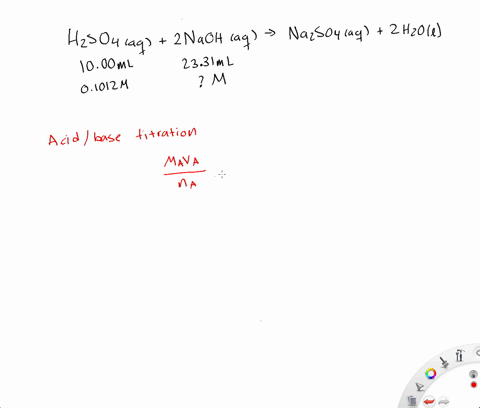 H₂SO₄ (aq) + 2NaOH (aq) → Na₂SO₄ (aq) + 2H₂O(l)
10.00mL 23.31mL
0.1012M ? M
Acid/base titration
MAVA
nA